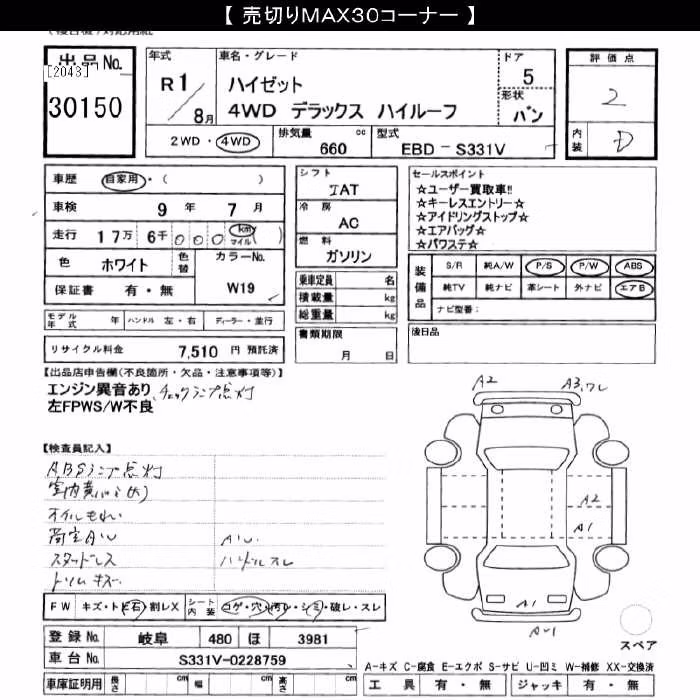 【 売切りMAX30コーナー 】
出品No. [2043] 30150
年式 R1/8月
車名・グレード ハイゼット
4WD デラックス ハイルーフ
ドア 5
形状 バン
評価点 2
内装 D
2WD・4WD 排気量 660 cc 型式 EBD-S331V
車歴 自家用・( )
車検 9年 7月
走行 17万 6千000 km マイル ( )
色 ホワイト 色替 カラーNo. W19
保証書 有・無
シフト IAT
冷房 AC
燃料 ガソリン
乗車定員 名
積載量 kg
総重量 kg
書類期限 月 日
セールスポイント
☆ユーザー買取車!!
☆キーレスエントリー☆
☆アイドリングストップ☆
☆エアバッグ☆
☆パワステ☆
装備品 S/R 純A/W P/S P/W ABS
純TV 純ナビ 革シート 外ナビ エアB
ナビ型番:
後日品
モデル年式 年 ハンドル 左・右 ディーラー・並行
リサイクル料金 7,510 円 預託済
【出品店申告欄(不良箇所・欠品・注意事項等)】
エンジン異音あり チェックランプ点灯
左FPWS/W不良
【検査員記入】
ABSランプ点灯
オイルもれ
スタッドレス ハンドルスレ
トリムキズ
A2 A3,ワレ
A2
A1
A1
A-1
スペア
FW キズ・トビ石・割レX シート内装 コゲ・穴・汚レ・シミ・破レ・スレ
登録No. 岐阜 480 ほ 3981
車台No. S331V-0228759
車庫証明用 長さ cm 幅 cm 高さ cm
A-キズ C-腐食 E-エクボ S-サビ U-凹ミ W-補修 XX-交換済
工具 有・無 ジャッキ 有・無